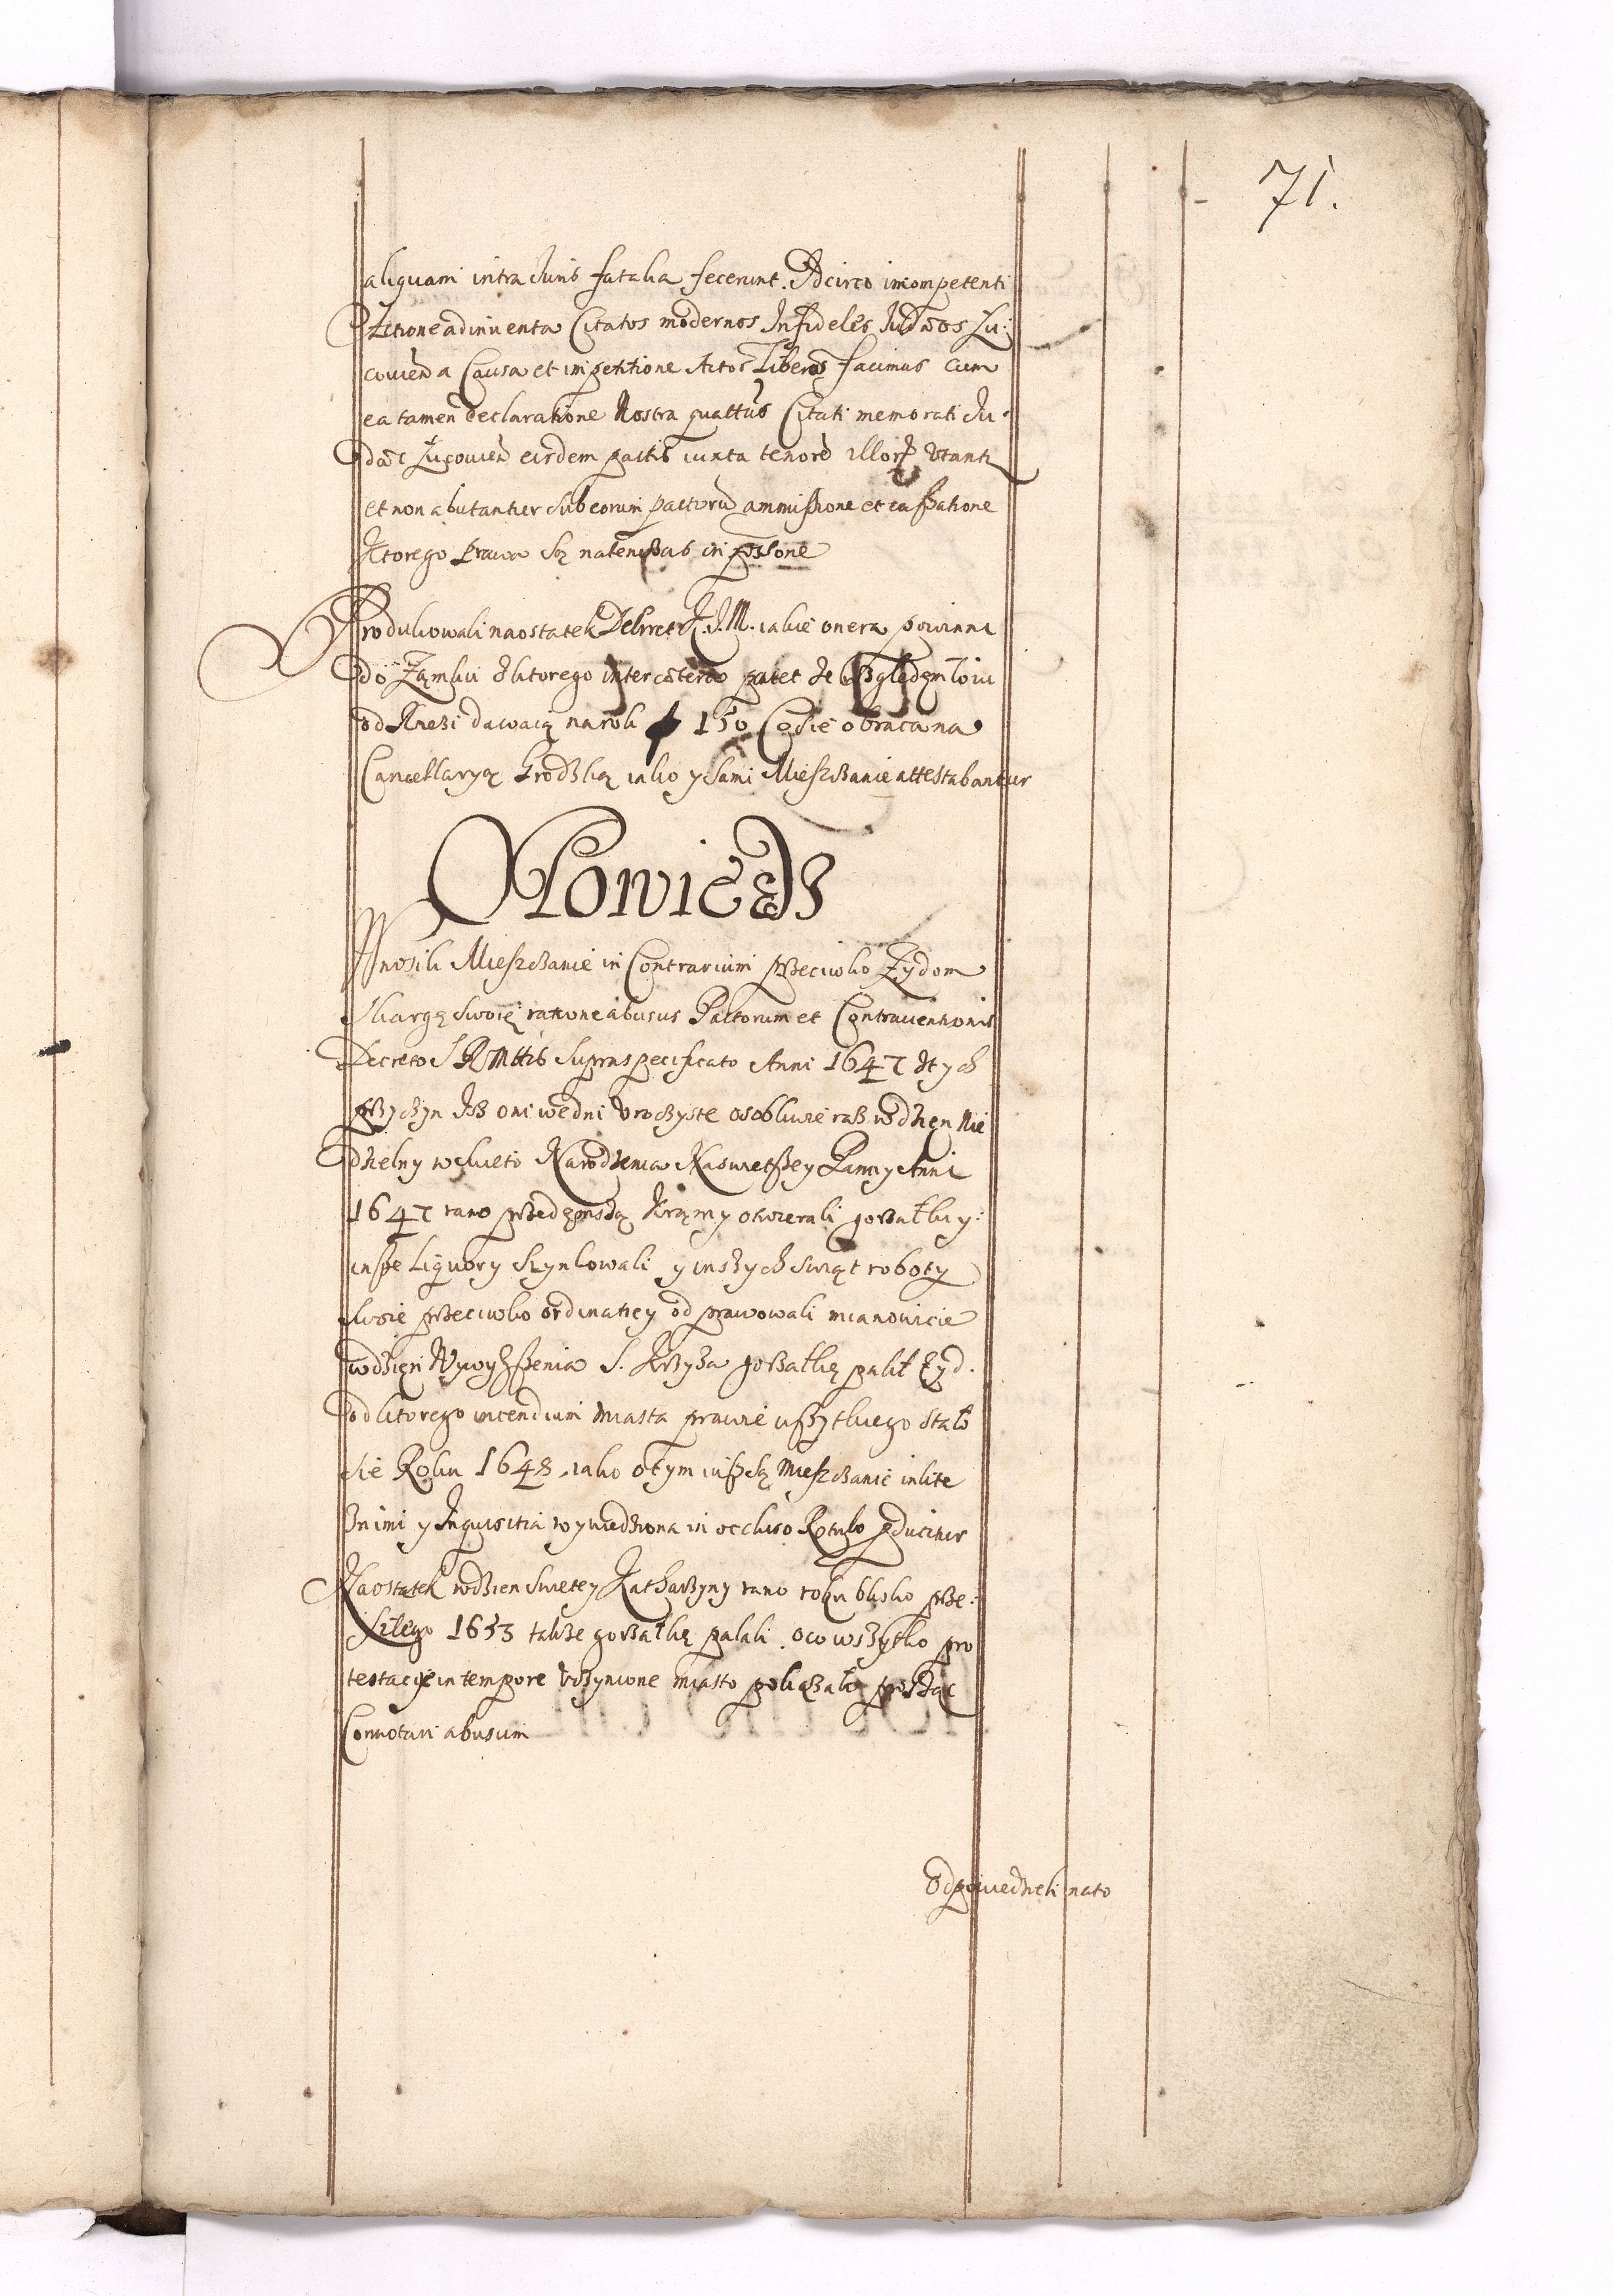 71.
aliquam intra Juris fatalia fecerunt. Idcirco incompetenti
Actione adinventa Citatos modernos Infideles Judæos Lu:
covien a Causa et impetitione Actor Liberos facimus cum
ea tamen declaratione Nostra quattus Citati memorati Ju-
dæi Lucovien eisdem pactis iuxta tenore illor Utantr
et non abutantur sub eorum pactoru ammissione et cassatione
Ktorego Prawa są natenczas in possone
Produkowali naostatek Dekret K. J. M. iakie onera powinni
do Zamku z ktorego inter cætera patet ze Względem Łoiu
od Rzezi dawaią na rok 150 Co sie obraca na
Cancellaryą Grodzką iako y sami Mieszczanie attestabantur
Powieds
Wnosili Mieszczanie in Contrarium przeciwko Zydom
Skargę swoię ratione abusus Pactorum et Contraventionis
Decreto S R Mttis supraspecificato Anni 1647 Z tych
przyczyn Isz oni we dni Uroczyste osobliwie raz w dzien Nie
dzielny w swieto Narodzenia Naswietszey Panny Anni
1647 rano przed mszą Kramy otwierali gorzałki y:
insze Liquory Szynkowali y inszych swiąt roboty
swoie przeciwko ordinatiey od prawowali mianowicie
w dzien Wywyszszenia S. Krzyza gorzałkę palił Zyd.
od ktorego incendium Miasta prawie wszytkiego stało
sie Roku 1648 iako o tym iusz są Mieszczanie in lite
Z nimi y Inquisitia wywiedziona in occluso Rotulo producitur
Naostatek w dzien Swietey Katharzyny rano roku blisko prze:
szłego 1653 takze gorzałkę palali. o co wszytko pro
testacyie in tempore Uczynione miasto pokazało prosząc
Connotari abusum
Odpowiedzieli nato